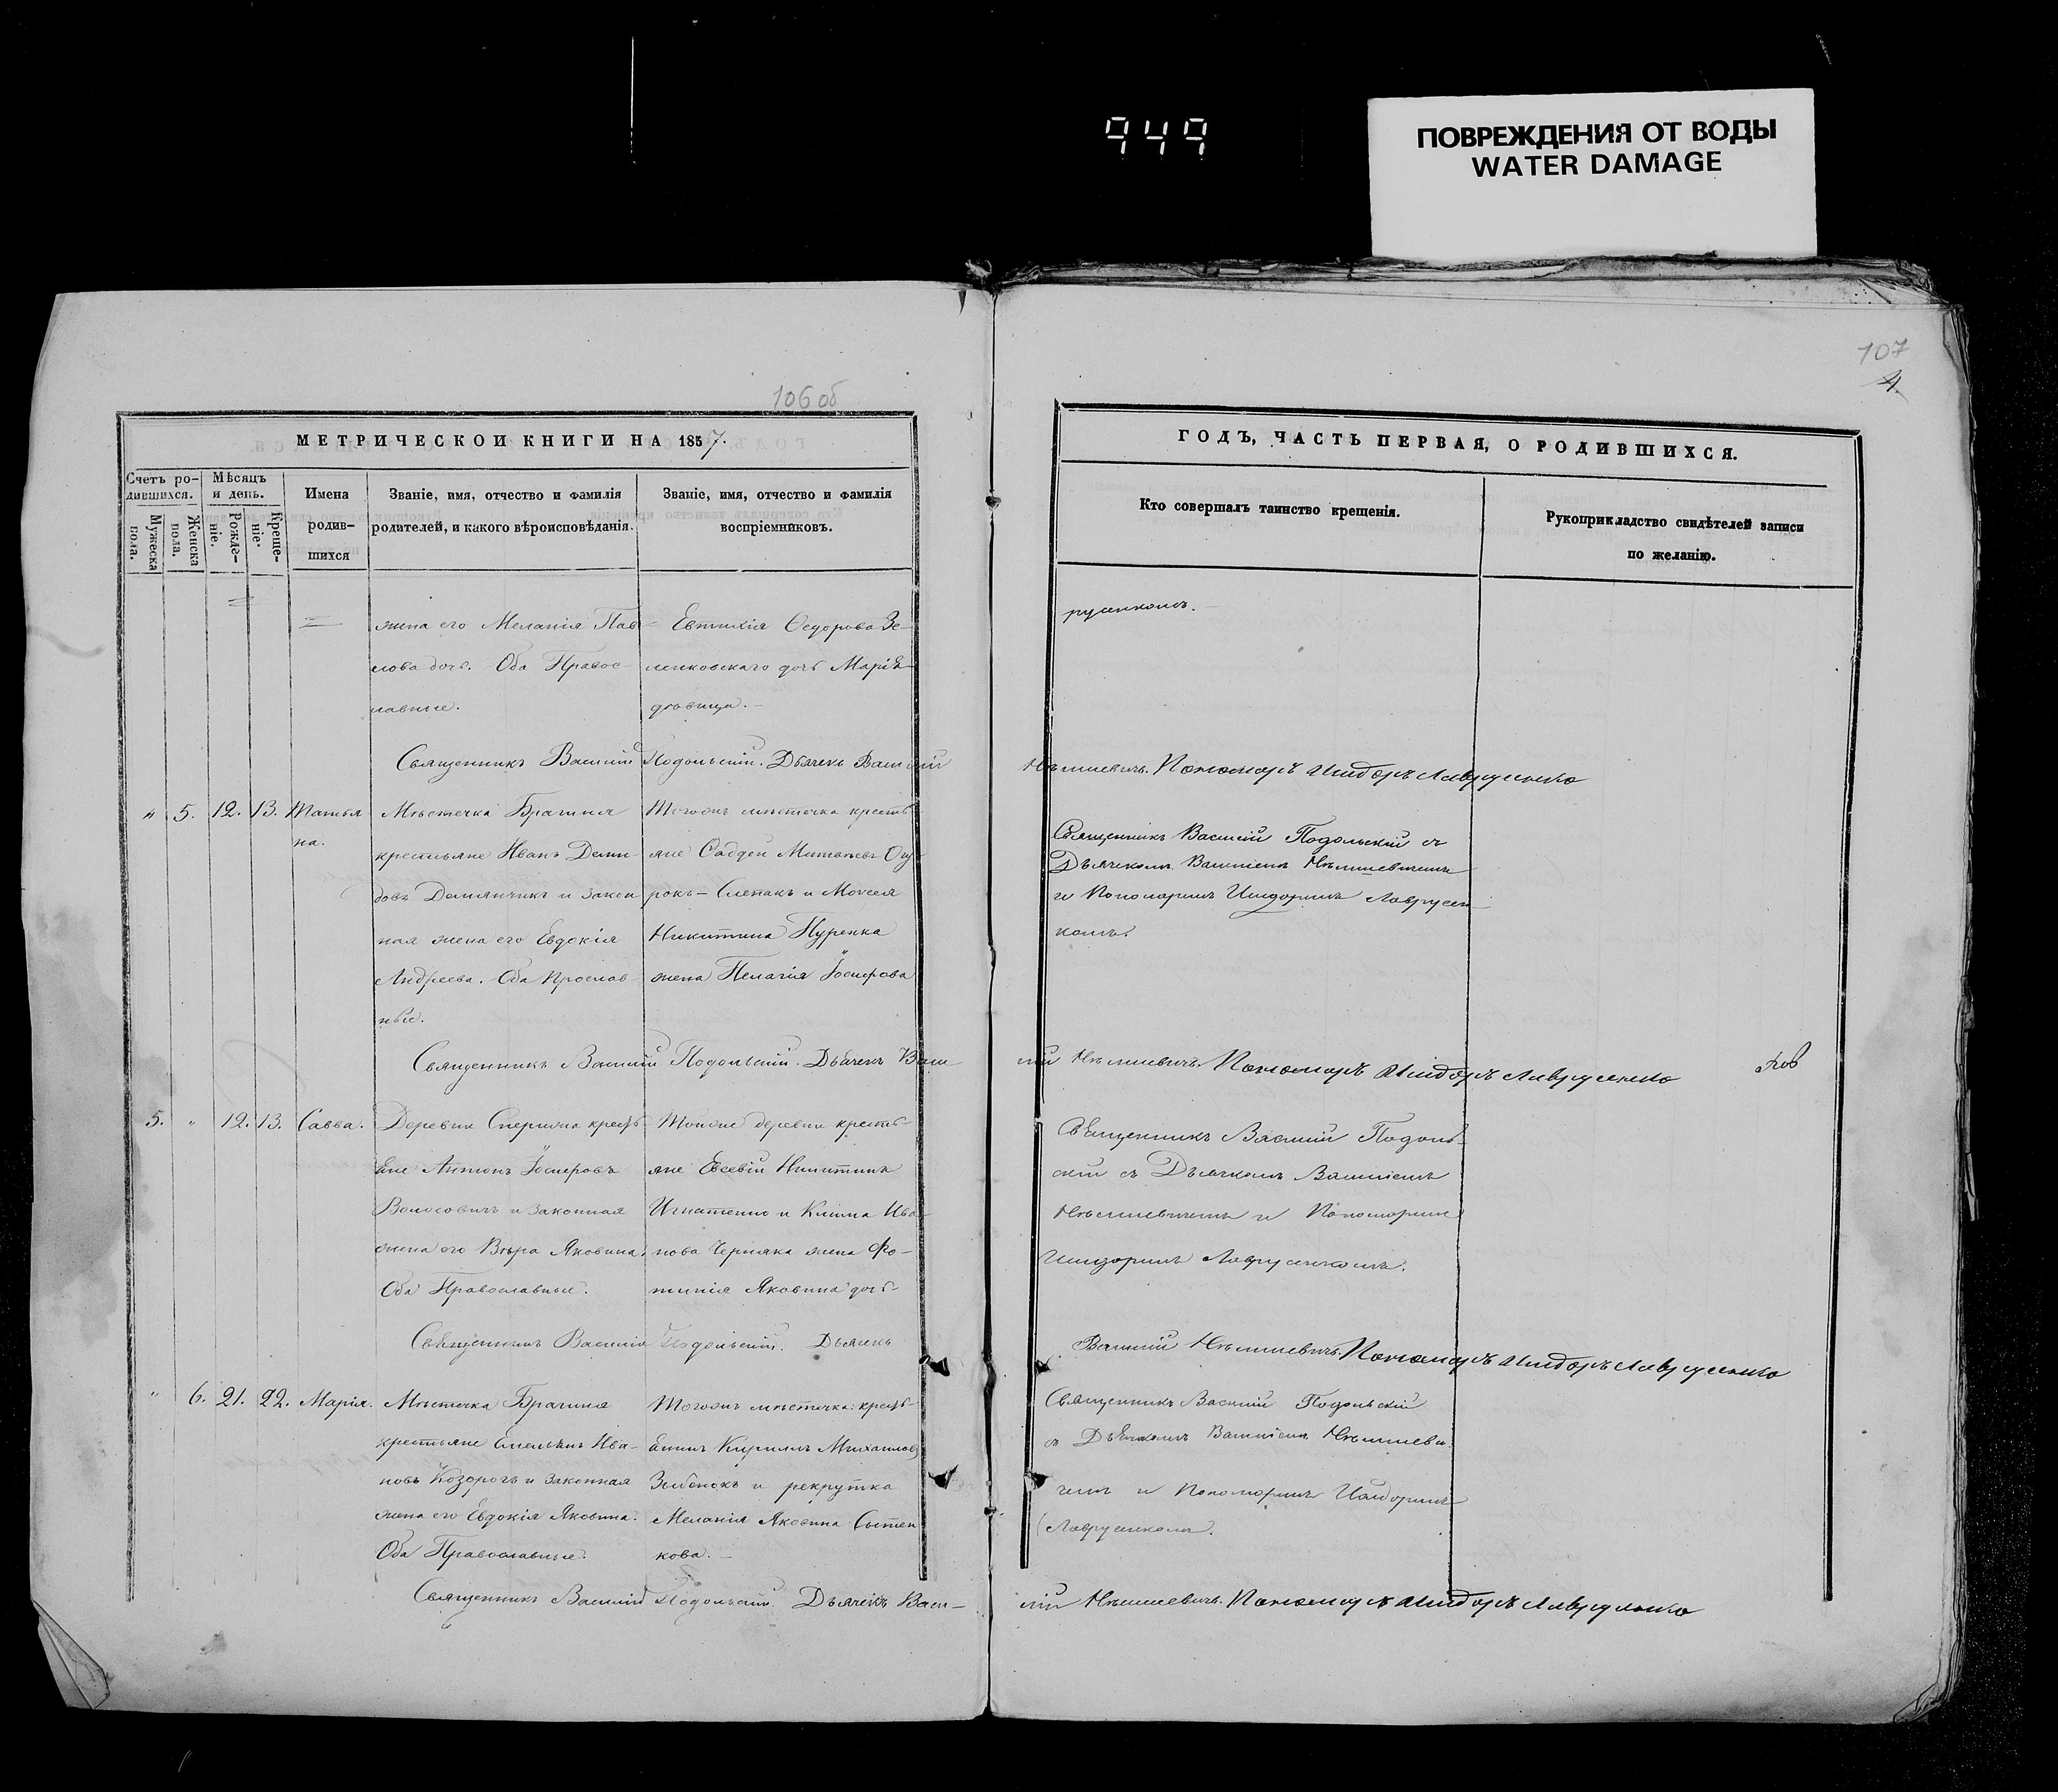 949
ПОВРЕЖДЕНИЯ ОТ ВОДЫ
WATER DAMAGE
106 об
МЕТРИЧЕСКОИ КНИГИ НА 1857.
Счетъ ро-
дившихся.
Мужеска
пола.
Женска
пола.
Мѣсяцъ
и день.
Рожде-
ніе.
Креще-
ніе.
Имена
родив-
шихся
Званіе, имя, отчество и фамилія
родителей, и какого вѣроисповѣданія.
Званіе, имя, отчество и фамилія
воспріемниковъ.
жена его Меланія Пав
лова дочь. Оба Правос
лавные.
Евтихія Ѳедорова Зе-
ленковскаго дочь Марія
дѣвица.
Священникъ Василій Подольскій. Дьячекъ Василій
" 5. 12. 13. Татья
на.
Мѣстечка Брагиня
крестьяне Иванъ Деми-
довъ Демянчикъ и закон
ная жена его Евдокія
Андреева. Оба Прослав
ные.
Тогожъ мѣстечка кресть
яне
рокъ - Слепакъ и Моисея
Никитина Куренка
жена Пелагія Іосифова
Священникъ Василій Подольскій. Дьячекъ Васи
5. " 12. 13. Савва.
Деревни кресть
яне Антонъ Іосифовъ
Волосовичъ и законная
жена его Вѣра Яковина.
Оба Православные.
Тойже деревни кресть-
яне Евсевій Никитинъ
Игнатенко и Клима Ива-
нова Черняка жена Фо-
тинія Яковина дочь
Священникъ Василій Подольскій. Дьячекъ
" 6. 21. 22. Марія.
Мѣстечка Брагиня
крестьяне Емельянъ Ива-
новъ Козорогъ и законная
жена его Евдокія Яковина.
Оба Православные.
Тогожъ мѣстечка: кресть-
янинъ Кирилъ Михаиловъ
и рекрутка
Меланія Яковина Сытен
кова.
Священникъ Василій Подольскій. Дьячекъ Васи-
107
4.
ГОДЪ, ЧАСТЬ ПЕРВАЯ, О РОДИВШИХСЯ.
Кто совершалъ таинство крещенія.
Рукоприкладство свидѣтелей записи
по желанію.
русенкомъ.
Пономарь Исидоръ Лаврусенко
Священникъ Василій Подольскій съ
Дьячекомъ Василіемъ
и Пономаремъ Исидоромъ Лаврусен
комъ.
лій Пономарь Исидоръ Лаврусенко
Священникъ Василій Подоль-
скій съ Дьячкомъ Василіемъ
и Пономаремъ
Исидоромъ Лаврусенкомъ.
Василій Пономарь Исидоръ Лаврусенко
Священникъ Василій Подольскій
съ Дьячкомъ Василіемъ
чемъ и Пономаремъ Исидоромъ
Лаврусенкомъ.
лій Пономарь Исидоръ Лаврусенко